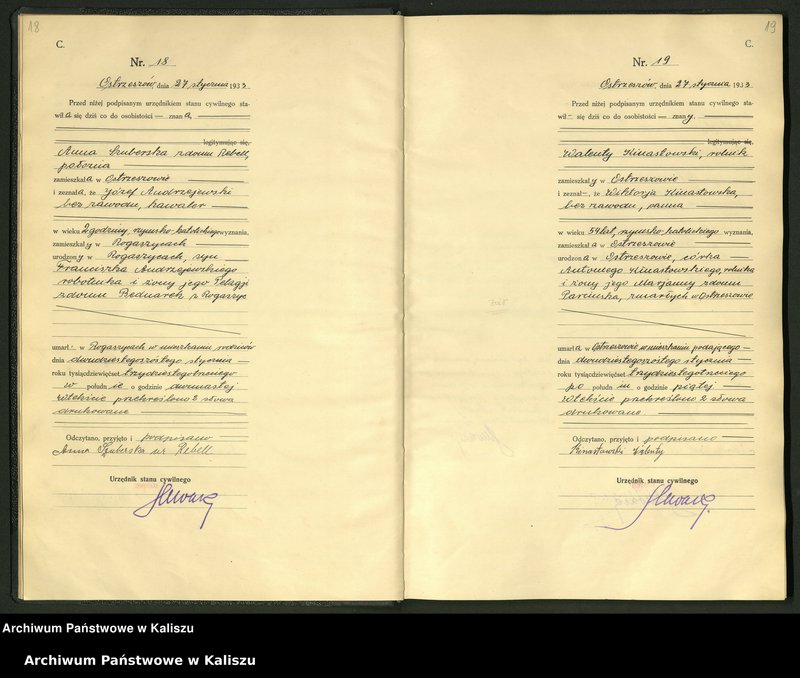 18
C.
Nr. 18
Ostrzeszów, dnia 27 stycznia 1933
Przed niżej podpisanym urzędnikiem stanu cywilnego sta-
wiła się dziś co do osobistości — znana,
legitymując się,
Anna Szuberska zdomu Rebell,
położna
zamieszkała w Ostrzeszowie
i zeznała, że Józef Andrzejewski
bez zawodu, kawaler
w wieku 2 godziny, rzymsko-katolickiego wyznania,
zamieszkały w Rogaszycach
urodzony w Rogaszycach, syn
Franciszka Andrzejewskiego
robotnika i żony jego Pelagji
zdomu Bednarek z Rogaszyc
umarł - w Rogaszycach w mieszkaniu rodziców
dnia dwudziestegoszóstego stycznia
roku tysiącdziewięćset trzydziestegotrzeciego
w połudn ie o godzinie dwunastej
Wtekście przekreślono 2 słowa
drukowane
Odczytano, przyjęto i podpisano
Anna Szuberska ur. Rebell
Urzędnik stanu cywilnego
19
C.
Nr. 19
Ostrzeszów, dnia 27 stycznia 1933
Przed niżej podpisanym urzędnikiem stanu cywilnego sta-
wił - się dziś co do osobistości — znany,
legitymując się,
Walenty Kinastowski, rolnik
zamieszkały w Ostrzeszowie
i zeznał -, że Wiktorja Kinastowska,
bez zawodu, panna
w wieku 54 lat, rzymsko-katolickiego wyznania,
zamieszkała w Ostrzeszowie
urodzona w Ostrzeszowie, córka
Antoniego Kinastowskiego, rolnika
i żony jego Marjanny zdomu
zmarłych w Ostrzeszowie
umarła w Ostrzeszowie w mieszkaniu podającego
dnia dwudziestegoszóstego stycznia
roku tysiącdziewięćset trzydziestegotrzeciego
po połudn iu o godzinie piątej
Wtekście przekreślono 2 słowa
drukowane.
Odczytano, przyjęto i podpisano
Kinastowski Walenty
Urzędnik stanu cywilnego
Archiwum Państwowe w Kaliszu
Archiwum Państwowe w Kaliszu